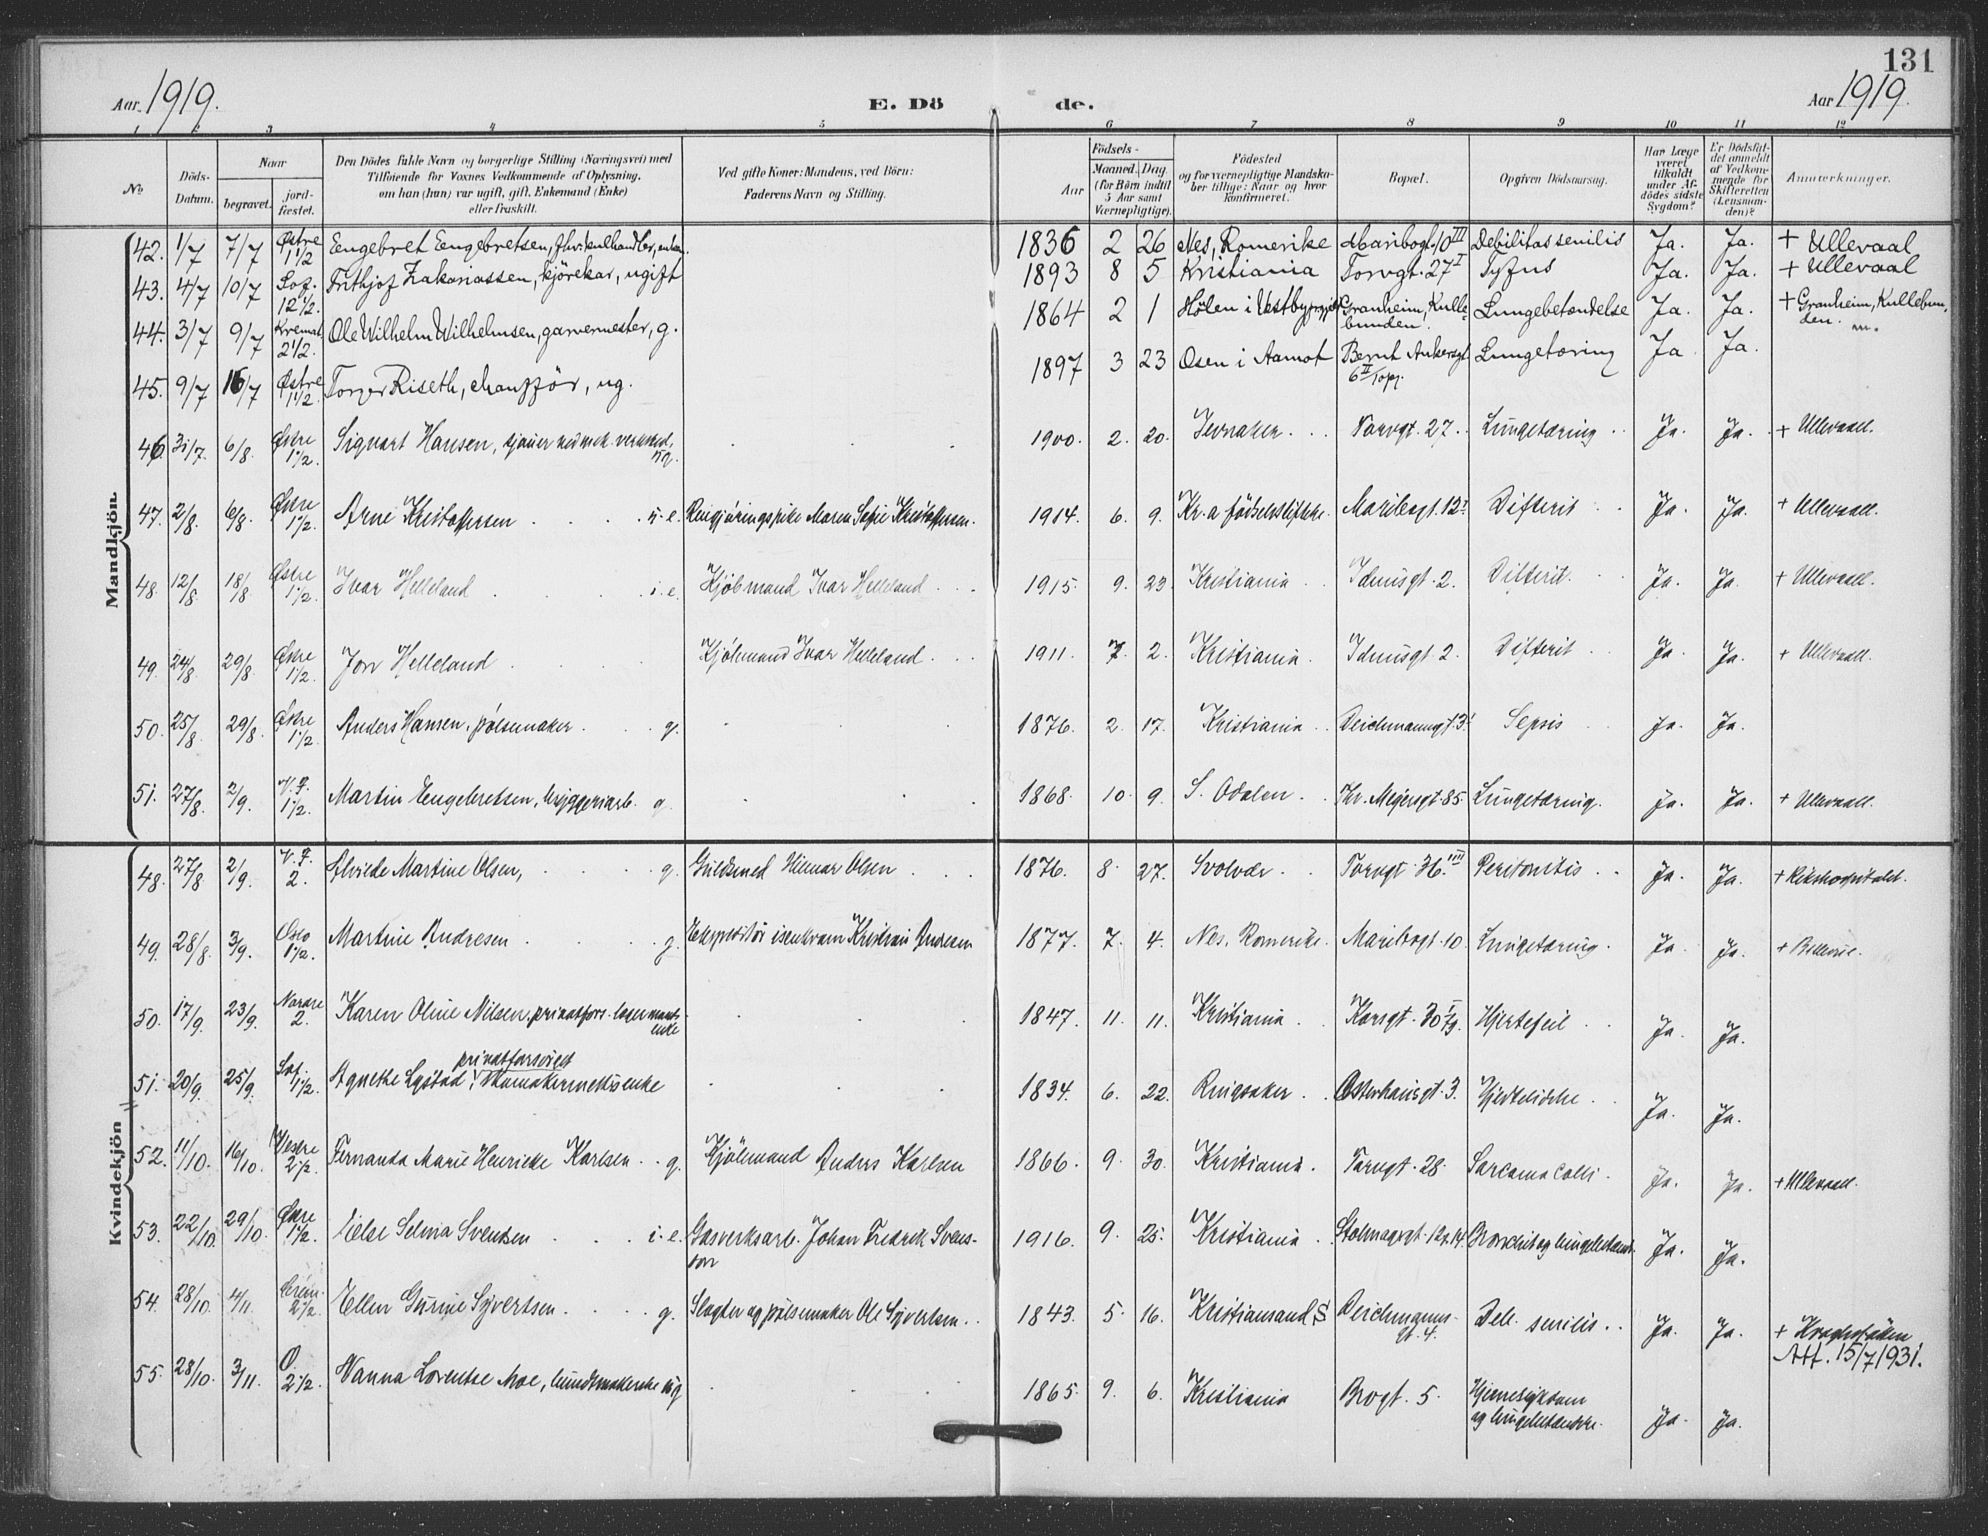 131
Aar 1919.
E. Dö de.
Aar 1919.
1 2 3 4 5 6 7 8 9 10 11 12
No
Döds-Datum.
Naar
begravet.
jord-fæstet.
Den Dödes fulde Navn og borgerlige Stilling (Næringsvei) med
Tilföiende for Voxnes Vedkommende af Oplysning,
om han (hun) var ugift, gift, Enkemand (Enke)
eller fraskilt.
Ved gifte Koner: Mandens, ved Börn:
Faderens Navn og Stilling.
Aar
Födsels-
Maaned. Dag
(for Börn indtil
5 Aar samt
Værnepligtige).
Födested
og for værnepligtige Mandska-
ber tillige: Naar og hvor
konfirmeret.
Bopæl.
Opgiven Dödsaarsag.
Har Læge
været
tilkaldt
under Af-
dödes sidste
Sygdom?
Er Dödsfal-
det anmeldt
af Vedkom-
mende for
Skifteretten
(Lensman-
den)?
Anmerkninger.
Mandkjön
42. 1/7 7/7 Østre 1 1/2 Eengebret Eengebretsen, 1836 2 26 Nes, Romerike Maribogt. 10 III Debilitas senilis Ja. Ja. + Ullevaal
43. 4/7 10/7 Sof. 12 1/2. Frithjof Zakariassen, kjörekar, ugift 1893 8 5 Kristiania Torvgt. 27 I Tyfus Ja. Ja. + Ullevaal
44. 3/7 9/7 Kremat. 2 1/2. Ole Wilhelm Wilhelmsen, garvermester, g. 1864 2 1 Hölen i Vestby Granheim, Kulle-bunden. Lungebetændelse Ja. Ja. + Granheim, Kullebun-den.
45. 9/7 16/7 Østre 1 1/2. Riseth, chauffør, ug. 1897 3 23 Osen i Aamot Bernt Ankersgt 6 II Lungetæring Ja. Ja.
46. 31/7. 6/8. Østre 1 1/2. Sigvart Hansen, sjauer ved mek. verksted, ug. 1900. 2. 20. Jevnaker. Torvgt. 27. Lungetæring Ja. Ja. + Ullevaall.
47. 2/8. 6/8. Østre 1 1/2. Arne Kristoffersen u. e. Rengjöringspike Maren Sofie Kristoffersen. 1914. 6. 9. Kr.a födselsstiftelse. Maribogt. 12 I Difterit Ja. Ja. + Ullevaall.
48. 12/8. 18/8. Østre 1 1/2. Ivar Helleland i. e. Kjöbmand Ivar Helleland 1915. 9. 23. Kristiania Idunsgt. 2. Difterit. Ja. Ja. + Ullevaall.
49. 24/8. 29/8. Østre 1 1/2. Jon Helleland Kjöbmand Ivar Helleland 1911. 7. 2. Kristiania. Idunsgt. 2. Difterit Ja. Ja. + Ullevaall.
50. 25/8. 29/8. Østre 1 1/2. Anders Hansen, pölsemaker g. 1876. 2. 17. Kristiania Deichmannsgt. 3. Sepsis Ja. Ja.
51. 27/8. 2/9. V. F. 1 1/2. Martin Eengebretsen, bryggeriarb. g. 1868. 10. 9. S. Odalen. Thv. Meyersgt. 85. Lungetæring. Ja. Ja. + Ullevaall.
Kvindekjön
48. 27/8 2/9. V. F. 2. Alvilde Martine Olsen, g. Guldsmed Hilmar Olsen 1876. 8. 27. Svolvær. Torvgt. 36. III Peritonitis Ja. Ja. + Rikshospitalet.
49. 28/8. 3/9. Oslo 1 1/2. Martine Andresen g. Ekspeditör isenkram Kristian Andresen 1877. 7. 4. Nes, Romerike. Maribogt. 10 Lungetæring. Ja. Ja. + Bellevue.
50. 17/9. 23/9. Nordre 2. Karen Oline Nilsen, privatfors. lagermands enke 1847. 11. 11. Kristiania Korsgt. 30 I Hjertefeil Ja. Ja.
51. 20/9. 25/9. Sof. 1 1/2. Agnethe Lystad, privatforsörget skomakermesters enke 1834. 6. 22. Ringsaker Osterhausgt. 3. Hjertelidelse Ja. Ja.
52. 11/10. 16/10. Vestre 2 1/2. Fernanda Marie Henricke Karlsen g. Kjöbmand Anders Karlsen 1866. 9. 30. Kristiania. Torvgt. 28. Sarcoma colli. Ja. Ja. + Ullevaall.
53. 22/10. 29/10. Østre 1 1/2. Else Selma Svendsen i. e. Gasverksarb. Johan Fredrik Svens-son 1916. 9. 25. Kristiania Stolmagergt. 12 & 14 Bronchit og lungebetænd. Ja. Ja.
54. 28/10. 4/11. Crem. 2 1/2. Ellen Gurine Syvertsen g. Slagter og pölsemaker Ole Syvertsen 1843. 5. 16. Kristiansand S Deichmanns-gt. 4. Deb. senilis. Ja. Ja. + Att. 15/7 1931.
55. 28/10. 3/11. O. 2 1/2. Nanna Lorentse Moe, ug 1865. 9. 6. Kristiania Brogt. 5. Hjernesykdom og lungebetændelse. Ja. Ja.